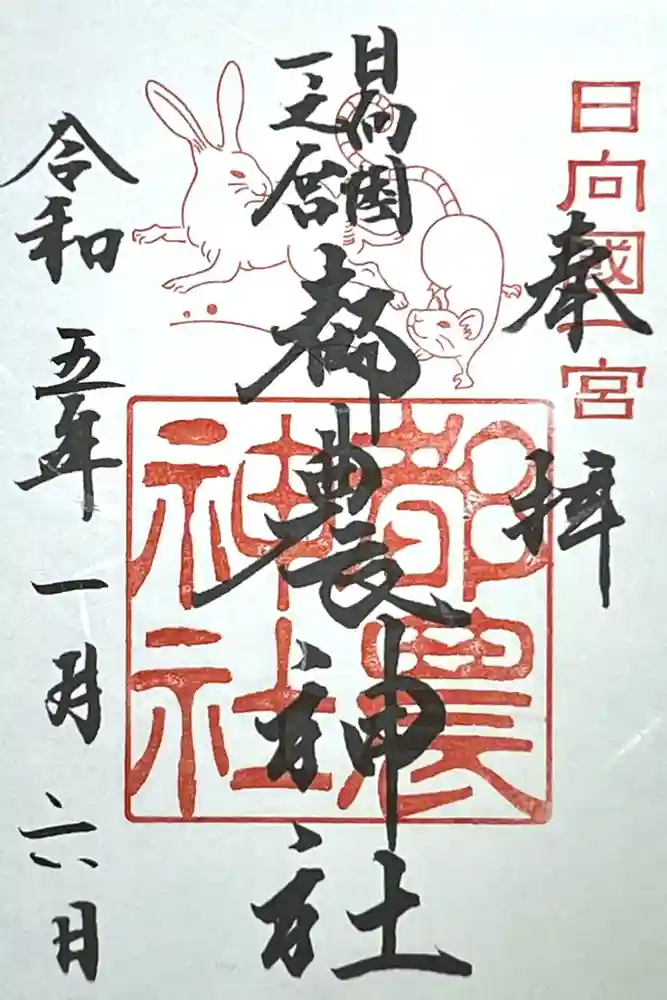 日向國一宮
奉拝
日向國
一之宮
都農神社
都農
神社
令和五年一月六日